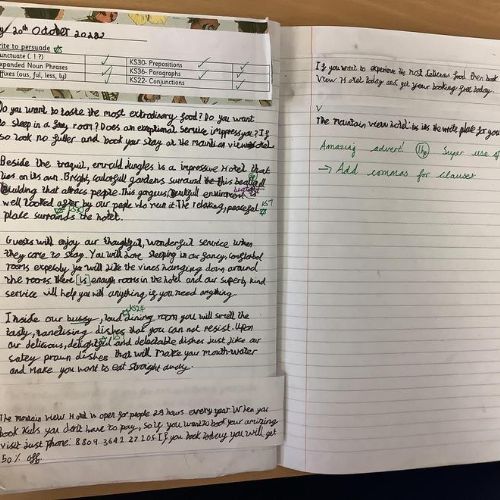 20th October 2022
write to persuade
Punctuate ( ! ? )
KS30- Prepositions
Expanded Noun Phrases
KS36- Paragraphs
Suffixes (ous, ful, less, ly)
KS22- Conjunctions
Do you want to taste the most extraordinary food? Do you want
to sleep in a room? Does an exceptional service impress you? If
so look no futher and book your stay at the mountian view Hotel
Beside the tranquil, emrould jungles is a impressive Hotel that
lies on its own. Bright, colourfull gardens suround this
building that attracs people. This gorgous, beutifull enviroment is
well looked after by our people who run it. The relaxing, peaceful
place surrounds the hotel.
Guests will enjoy our thoughtful, wonderful service when
they come to stay. You will love sleeping in our fancy, comfortable
rooms especialy you will like the vines hanging down around
the rooms. There is enough rooms in the hotel and our superb, kind
service will help you will anything is you need anything
Inside our bussy, loud dining room you will smell the
tasty, tanetising dishes that you can not resist. Upon
our delicious, delightful and delectable dishes just like our
satey prawn dishes that will make you mouth-water
and make you want to eat straight away.
The montain view Hotel is open for people 24 hours every year. When you
book kids you don't have to pay, so if you want to book your amazing
visit just phone: 8804 3641 27105 If you book today you will get
50% off.
If you want to experience the most fabulous food then book
View Hotel today and get your booking fast today.
The mantain view hotel is the write place for you
Amazing advert! Super use of
→ Add commas for clauses